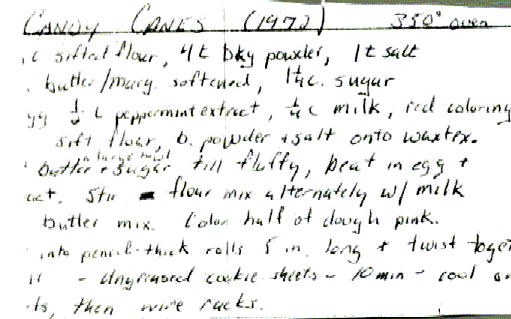 CANDY CANES (1972) 350° oven
c sifted flour, 4 t bkg powder, 1 t salt
butter/marg. softened, 1¼ c. sugar
gg ½ t peppermint extract, ¼ c milk, red coloring
sift flour, b. powder + salt onto waxtex.
in large bowl
butter + sugar till fluffy, beat in egg +
act. Stir flour mix alternately w/ milk
butter mix. Color half of dough pink.
into pencil-thick rolls 5 in. long + twist toge
- Ungreased cookie sheets - 10 min - cool on
ts, then wire racks.